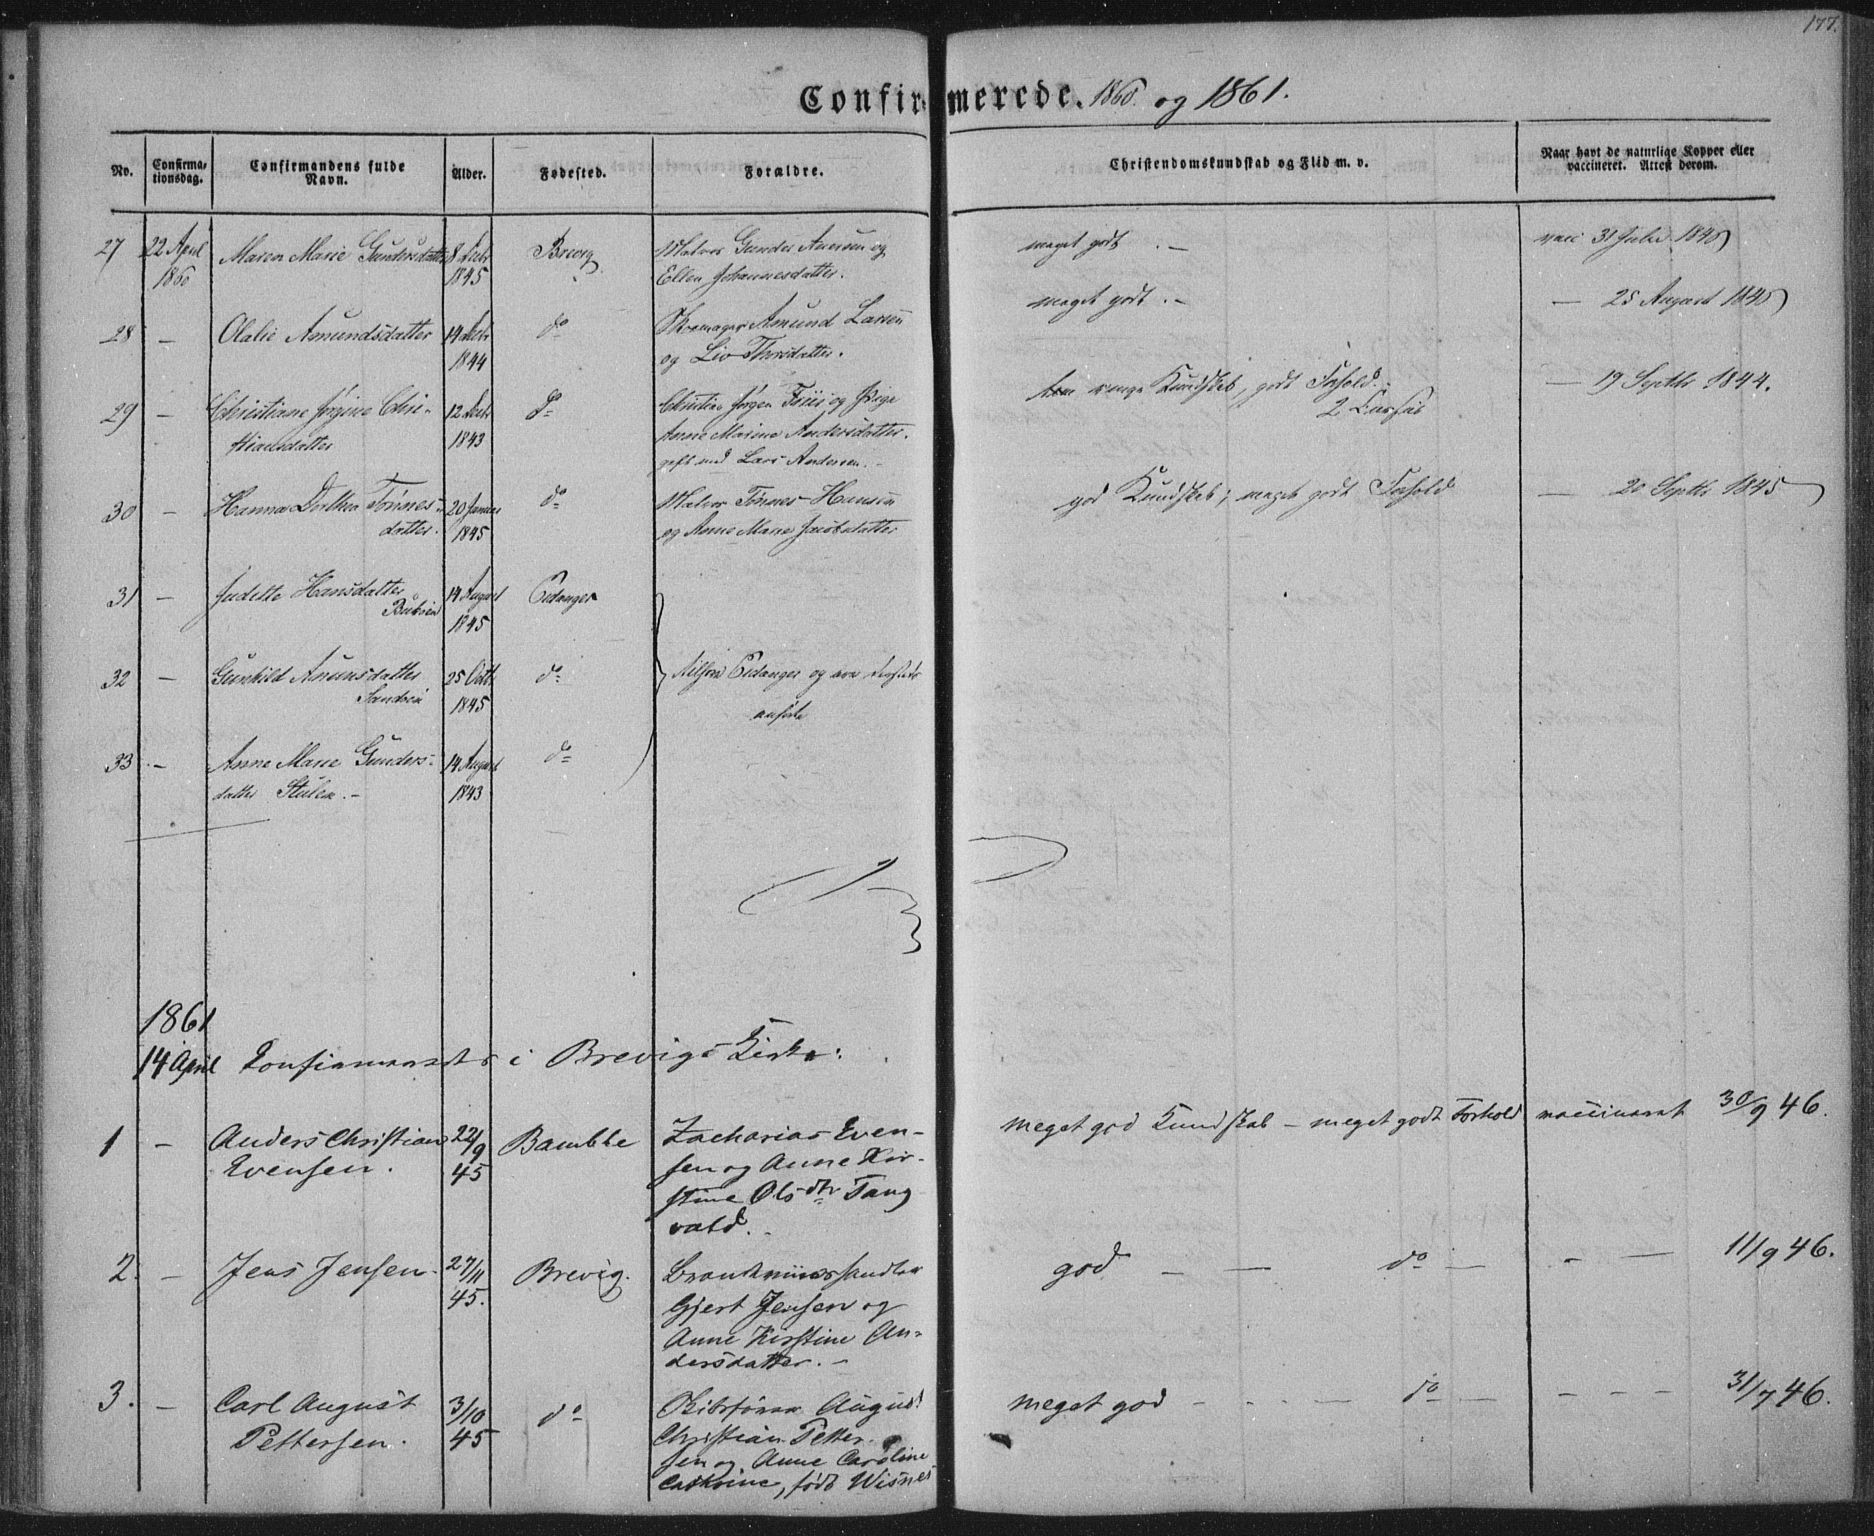 177.
Confirmerede. 1860. og 1861.
No. Confirma-tionsdag. Confirmandens fulde Navn. Alder. Fødested. Forældre. Christendomskundskab og Flid m. v. Naar havt de naturlige Kopper eller vaccineret. Attest derom.
27 22 April Maren Marie Gundersdatter 8 Decbr Brevig Matros Gunder Anersen og meget godt. - vacc 31 Julii 1846
1860 1845 Ellen Johannesdatter.
28 - Olalie Amundsdatter 14 Decbr do Amund Larsen meget godt. - — 25 August 1846
1844 og Liv Thorsdatter.
29 - Christiane Jørgine Chri- 12 Decbr do Christian Jørgen Friis og Pige ringe Kundskab, godt Forhold. — 19 Septbr 1844.
stiansdatter 1843 Anne Marine Andersdatter. 2 Cursus
gift med Lars Andersen. -
30 - Hanna Dorthea Tønnes- 20 Januar do Matros Tønnes Hansen god Kundskab; meget godt Forhold — 20 Septbr 1845
datter. 1845 og Anne Marie Jacobsdatter
31 - Judette Hansdatter 14 August Eidanger
1845
32 - Gunhild Amunsdatter 25 Octb. do Eidanger og ere
Sandvig 1845 anførte
33 - Anne Marie Gunders- 14 August do
datter Stulen. - 1843
1861
14 April Konfirmerede i Brevigs Kirke:
1 - Anders Christian 22/9 Bamble Zacharias Even- meget god Kundskab - meget godt Forhold vaccineret 30/9 46.
Evensen. 45 sen og Anne Kir-
stine Olsdtr Tang
vald.
2. - Jens Jensen. 27/11 Brevig. god - — do - - — 11/9 46.
45. Gjert Jensen og
Anne Kirstine An-
dersdatter. -
3. - Carl August 3/10 do Skibsfører August meget god - - - - do - — - - - 31/7 46.
Pettersen. 45 Christian Petter-
sen og Anne Caroline
Cathrine, født Wisnes